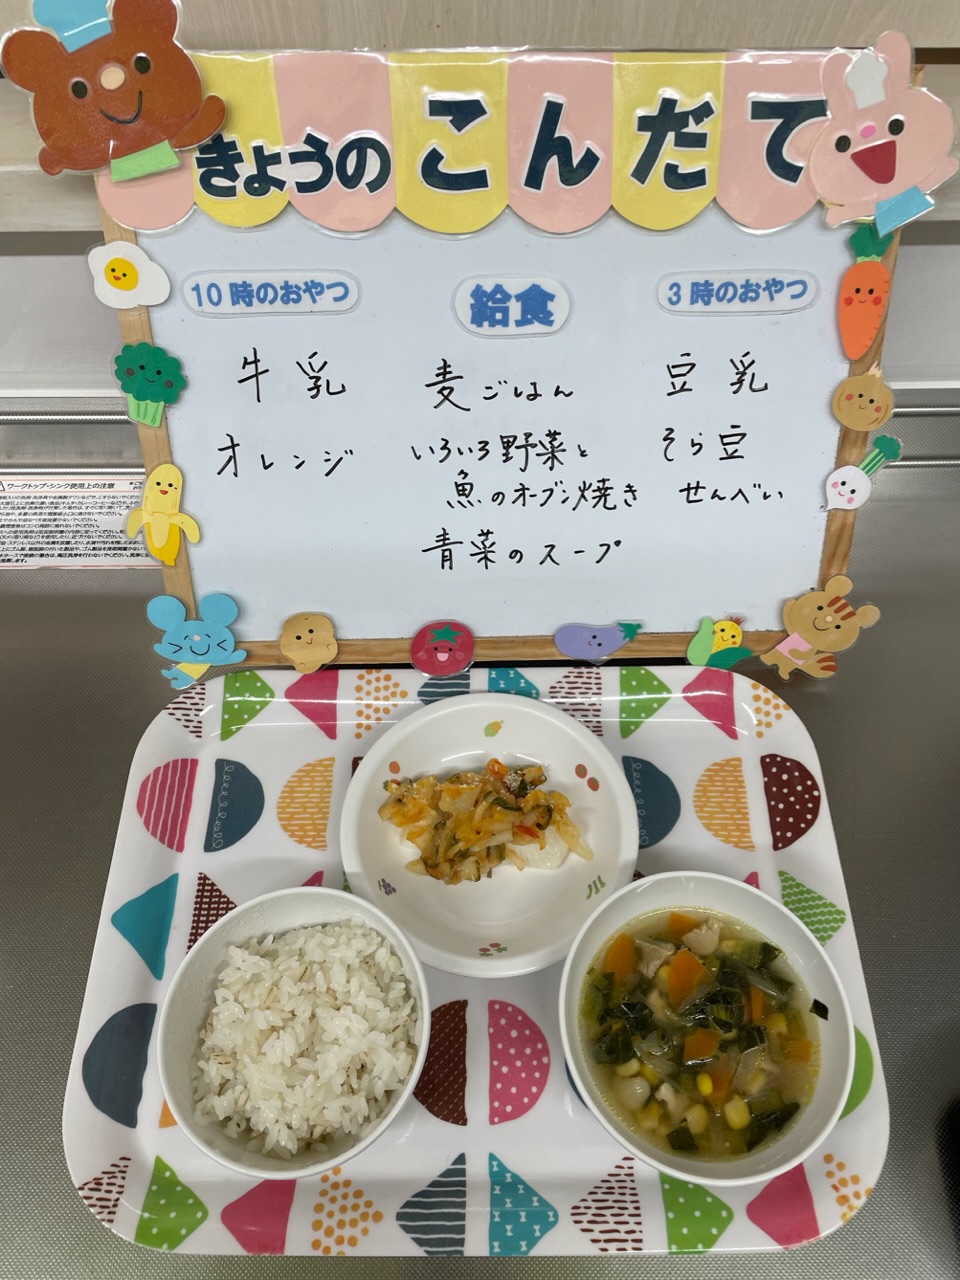 きょうのこんだて
10時のおやつ
牛乳
オレンジ
給食
麦ごはん
いろいろ野菜と
魚のオーブン焼き
青菜のスープ
3時のおやつ
豆乳
そら豆
せんべい
ワークトップ・シンク使用上の注意